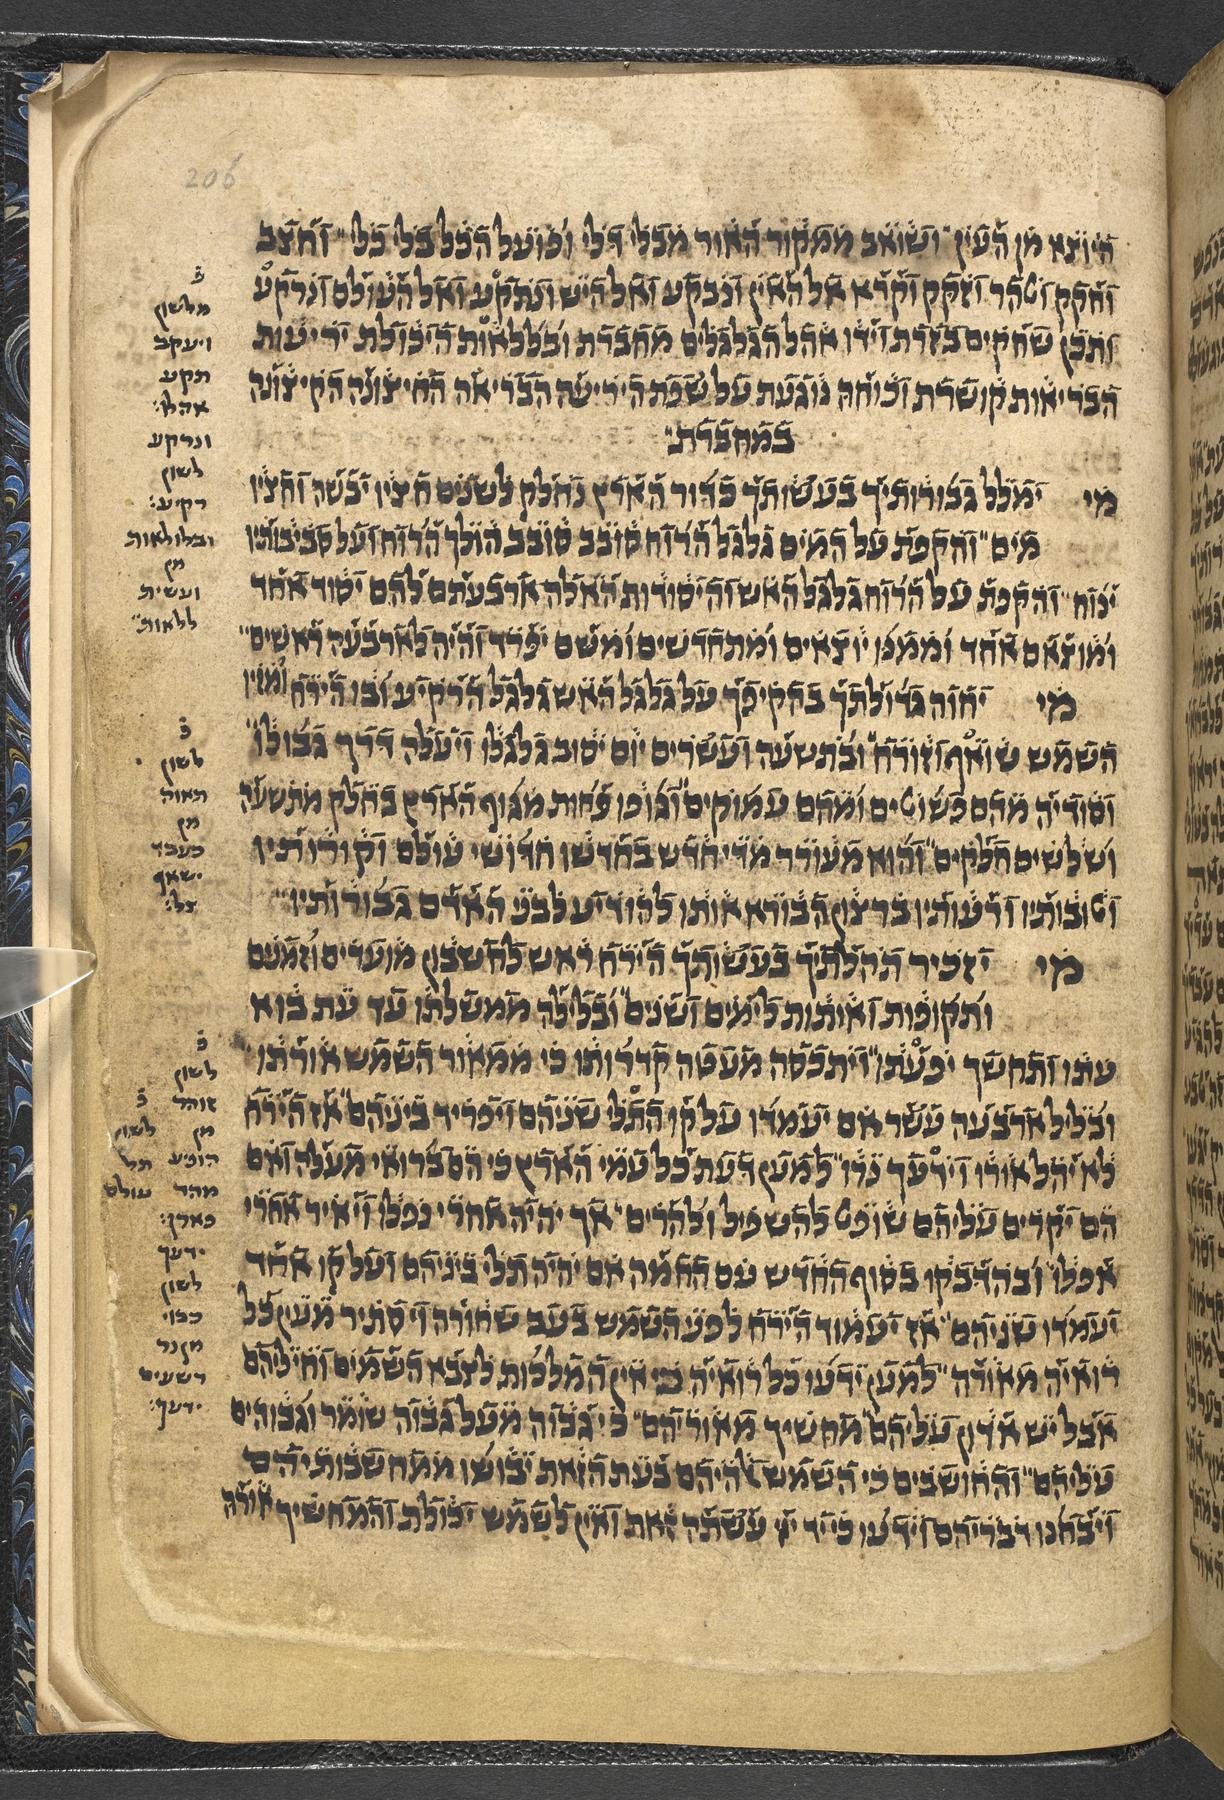 206
היוצא מן העין ושואב ממקור האור מבלי דלי ופועל הכל בלי כלי וחצב
וחקק וטהר וזקק וקרא אל האין ונבקע ואל היש ונתקע ואל העולם ונרקע
ותכן שחקים בזרת וידו אהל הגלגלים מחברת ובללאות היכולת יריעות
הבריאות קושרת וכוחה נוגעת על שפת היריעה הבריאה החיצונה הקיצונה
במחברת
מי ימלל גבורותיך בעשותך כדור הארץ נחלק לשנים חציו יבשה וחציו
מים והקפת על המים גלגל הרוח סובב סובב הולך הרוח ועל סביבותיו
ינוח והקפת על הרוח גלגל האש והיסודות האלה ארבעתם להם יסוד אחד
ומוצאם אחד וממנו יוצאים ומתחדשים ומשם יפרד והיה לארבעה ראשים
מי יחוה גדולתך בהקיפך על גלגל האש גלגל הרקיע ובו הירח ומזיו
השמש שואף וזורח ובתשעה ועשרים יום יסוב גלגלו ויעלה דרך גבולו
וסודיה מהם פשוטים ומהם עמוקים וגופו פחות מגוף הארץ כחלק מתשעה
ושלשים חלקים והוא מעורר מדי חדש בחדשו חדושי עולם וקורותיו
וטובותיו ורעותיו ברצון הבורא אותו להודיע לבני האדם גבורותיו
מי יזכיר תהלתיך בעשותך הירח ראש לחשבון מועדים וזמנים
ותקופות ואותות לימים ושנים ובלילה ממשלתו עד עת בוא
עתו ותחשך יפעתו ויתכסה מעטה קדרותו כי ממאור השמש אורתו
ובליל ארבעה עשר אם יעמדו על קו התלי שניהם ויפריד ביניהם אז הירח
לא יהל אורו וידעך נרו למען דעת כל עמי הארץ כי הם ברואי מעלה ואם
הם יקרים עליהם שופט להשפיל ולהרים אך יהיה אחרי נפלו ויאיר אחרי
אפלו ובהדבקו בסוף החדש עם החמה אם יהיה תלי ביניהם ועל קו אחד
יעמדו שניהם אז יעמוד הירח לפני השמש כעב שחורה ויסתיר מעין כל
רואיה מאורה למען ידעו כל רואיה כי אין המלכות לצבא השמים וחיליהם
אבל יש אדון עליהם מחשיך מאוריהם כי גבוה מעל גבוה שומר וגבוהים
עליהם והחושבים כי השמש אלהיהם בעת הזאת יבושו ממחשבותיהם
ויבחנו דבריהם וידעו כי יד ייי עשתה זאת ואין לשמש יכולת והמחשיך אורה
פ
מלשון
ויעקב
תקע
אהלו:
ונרקע
לשון
רקיע:
ובלולאות
מן
ועשית
ללאות
פ
לשון
תאוה
מן
כעבד
ישאף
צל:
פ
לשון
זוהר
מן
הופיע
מהר
פארן:
ידעך
לשון
כבוי
מן נר
רשעים
ידעך:
פ
לשון
תל
עולם